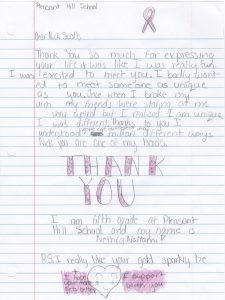 Pleasant Hill School
Dear Nick Scott,
Thank you so much for expressing
your life it was like I was really fun
I was excited to meet you. I badly want-
ed to meet someone as unique
as you. Once when I broke my
arm my friends were staring at me
very weird but I realized I am unique
I was different. Thanks to you I
understood million different ways
Nick you are one of my heros.
THANK
YOU
I am fifth grade at Pleasant
Hill School and my name is
P.S. I really like your gold sparkly tie
I hope
your mom
gets better
I support
both you